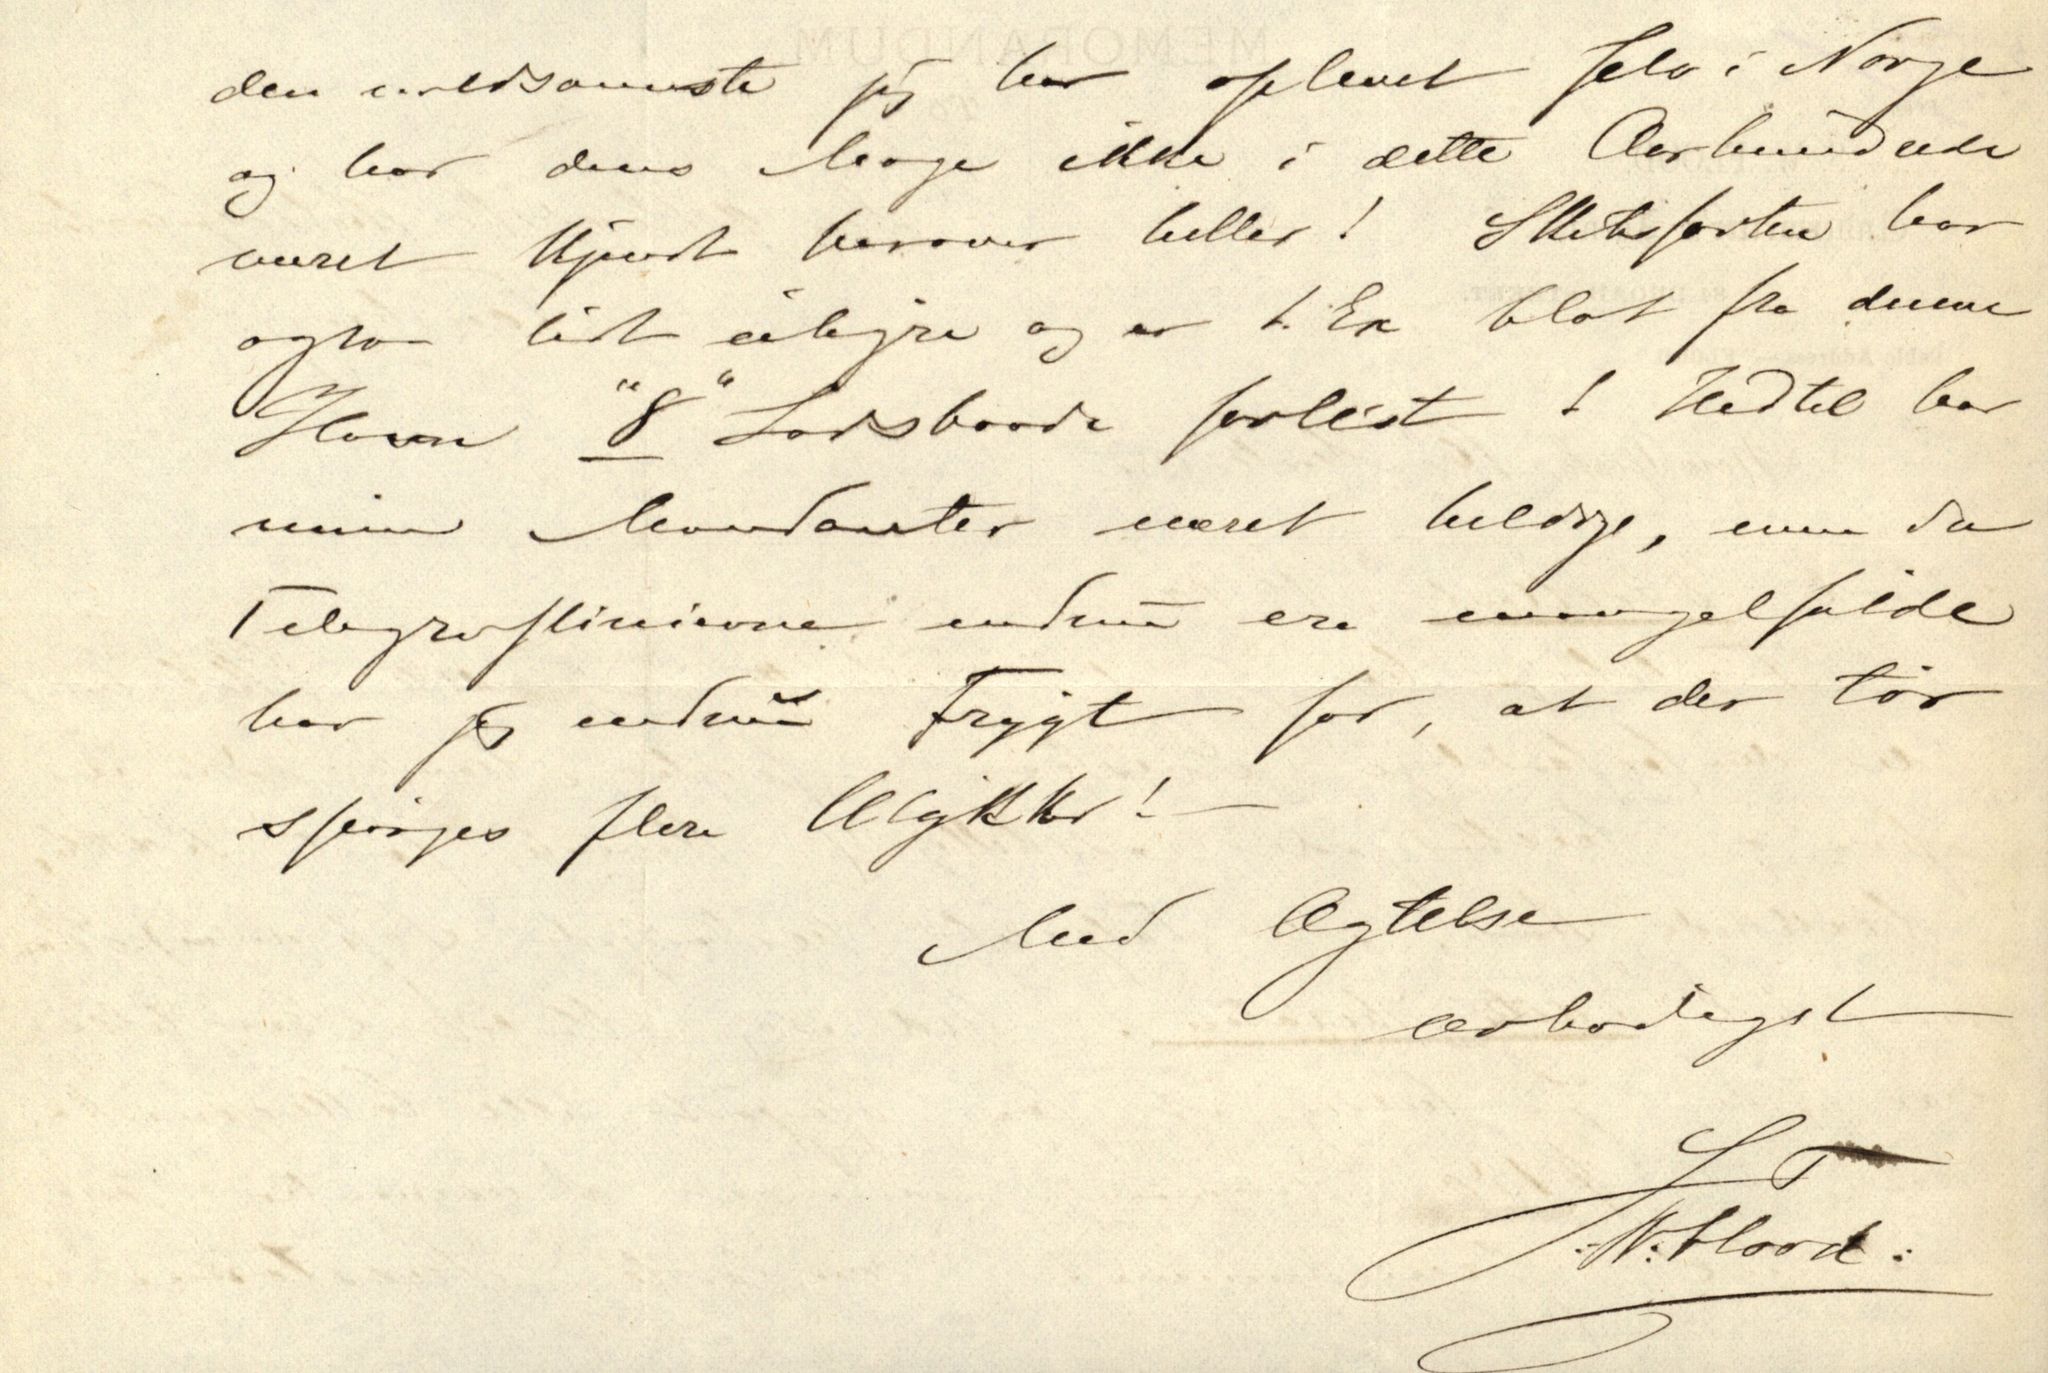 MEMORANDUM
den voldsomste jeg har oplevet selv i Norge
og har dens Mage ikke i dette Aarhundrede
været kjendt herover heller! Skibsfarten har
ogsaa lidt uhyre og er t. Ex blot fra denne
Havn "8" Lodsbaade forlist! Hidtil har
mine Mandanter været heldige, men da
Telegraflinierne endnu ere mangelfulde
har jeg endnu Frygt for, at der tør
spørges flere Ulykker! —
Med Agtelse
ærbødigst
:N. Flood: